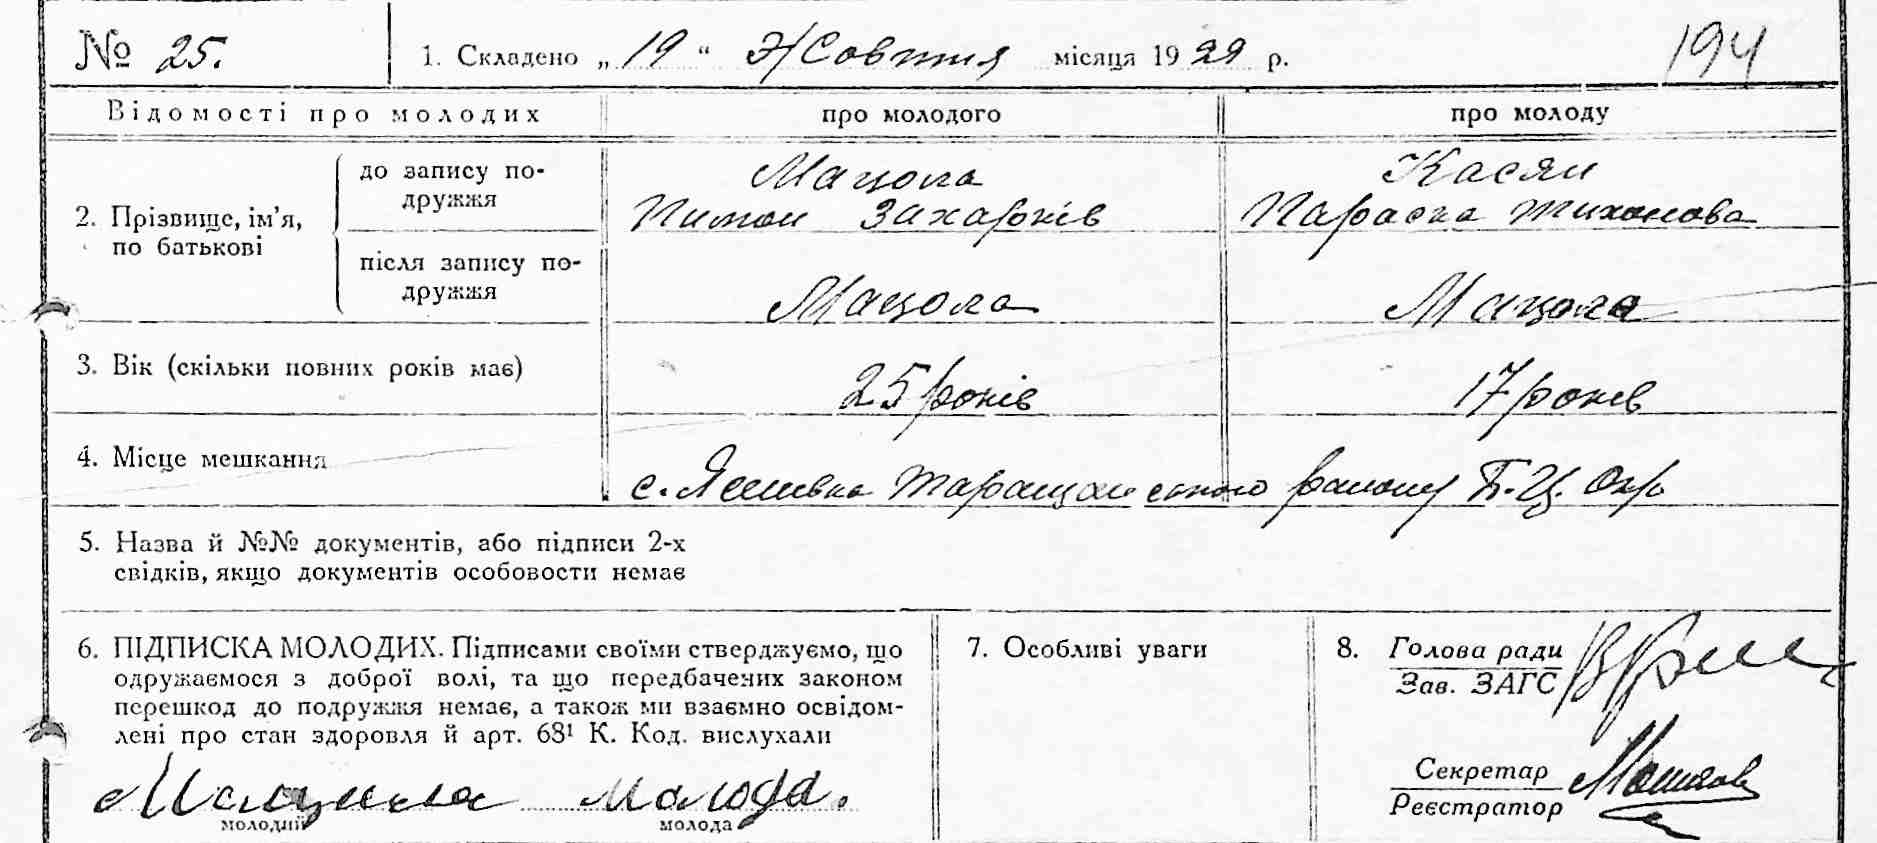 № 25. 1. Складено „19“ Жовтня місяця 1929 р. 194
Відомості про молодих про молодого про молоду
2. Прізвище, ім’я, по батькові
до запису по-
дружжя
Мацола
Пимон Захарків
Касян
Параска Тихонова
після запису по-
дружжя
Мацола Мацола
3. Вік (скільки повних років має) 25 років 17 років
4. Місце мешкання с. Ясинівка Таращанського району Б.Ц. Окр
5. Назва й №№ документів, або підписи 2-х
свідків, якщо документів особовости немає
6. ПІДПИСКА МОЛОДИХ. Підписами своїми стверджуємо, що
одружаємося з доброї волі, та що передбачених законом
перешкод до подружжя немає, а також ми взаємно освідом-
лені про стан здоровля й арт. 68¹ К. Код. вислухали
молодий молода
7. Особливі уваги
8. Голова ради
Зав. ЗАГС
Секретар
Реєстратор